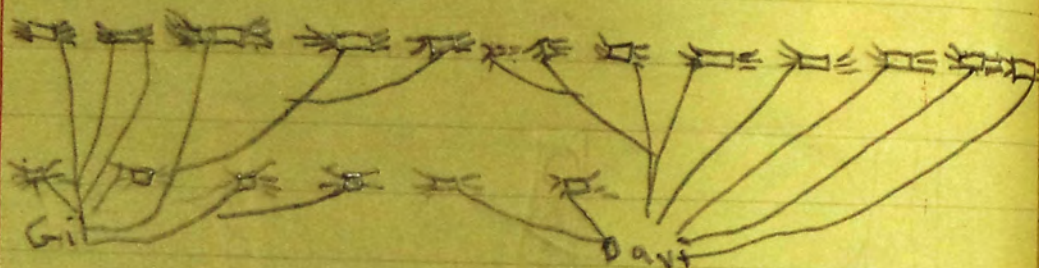 Gi
Dayt